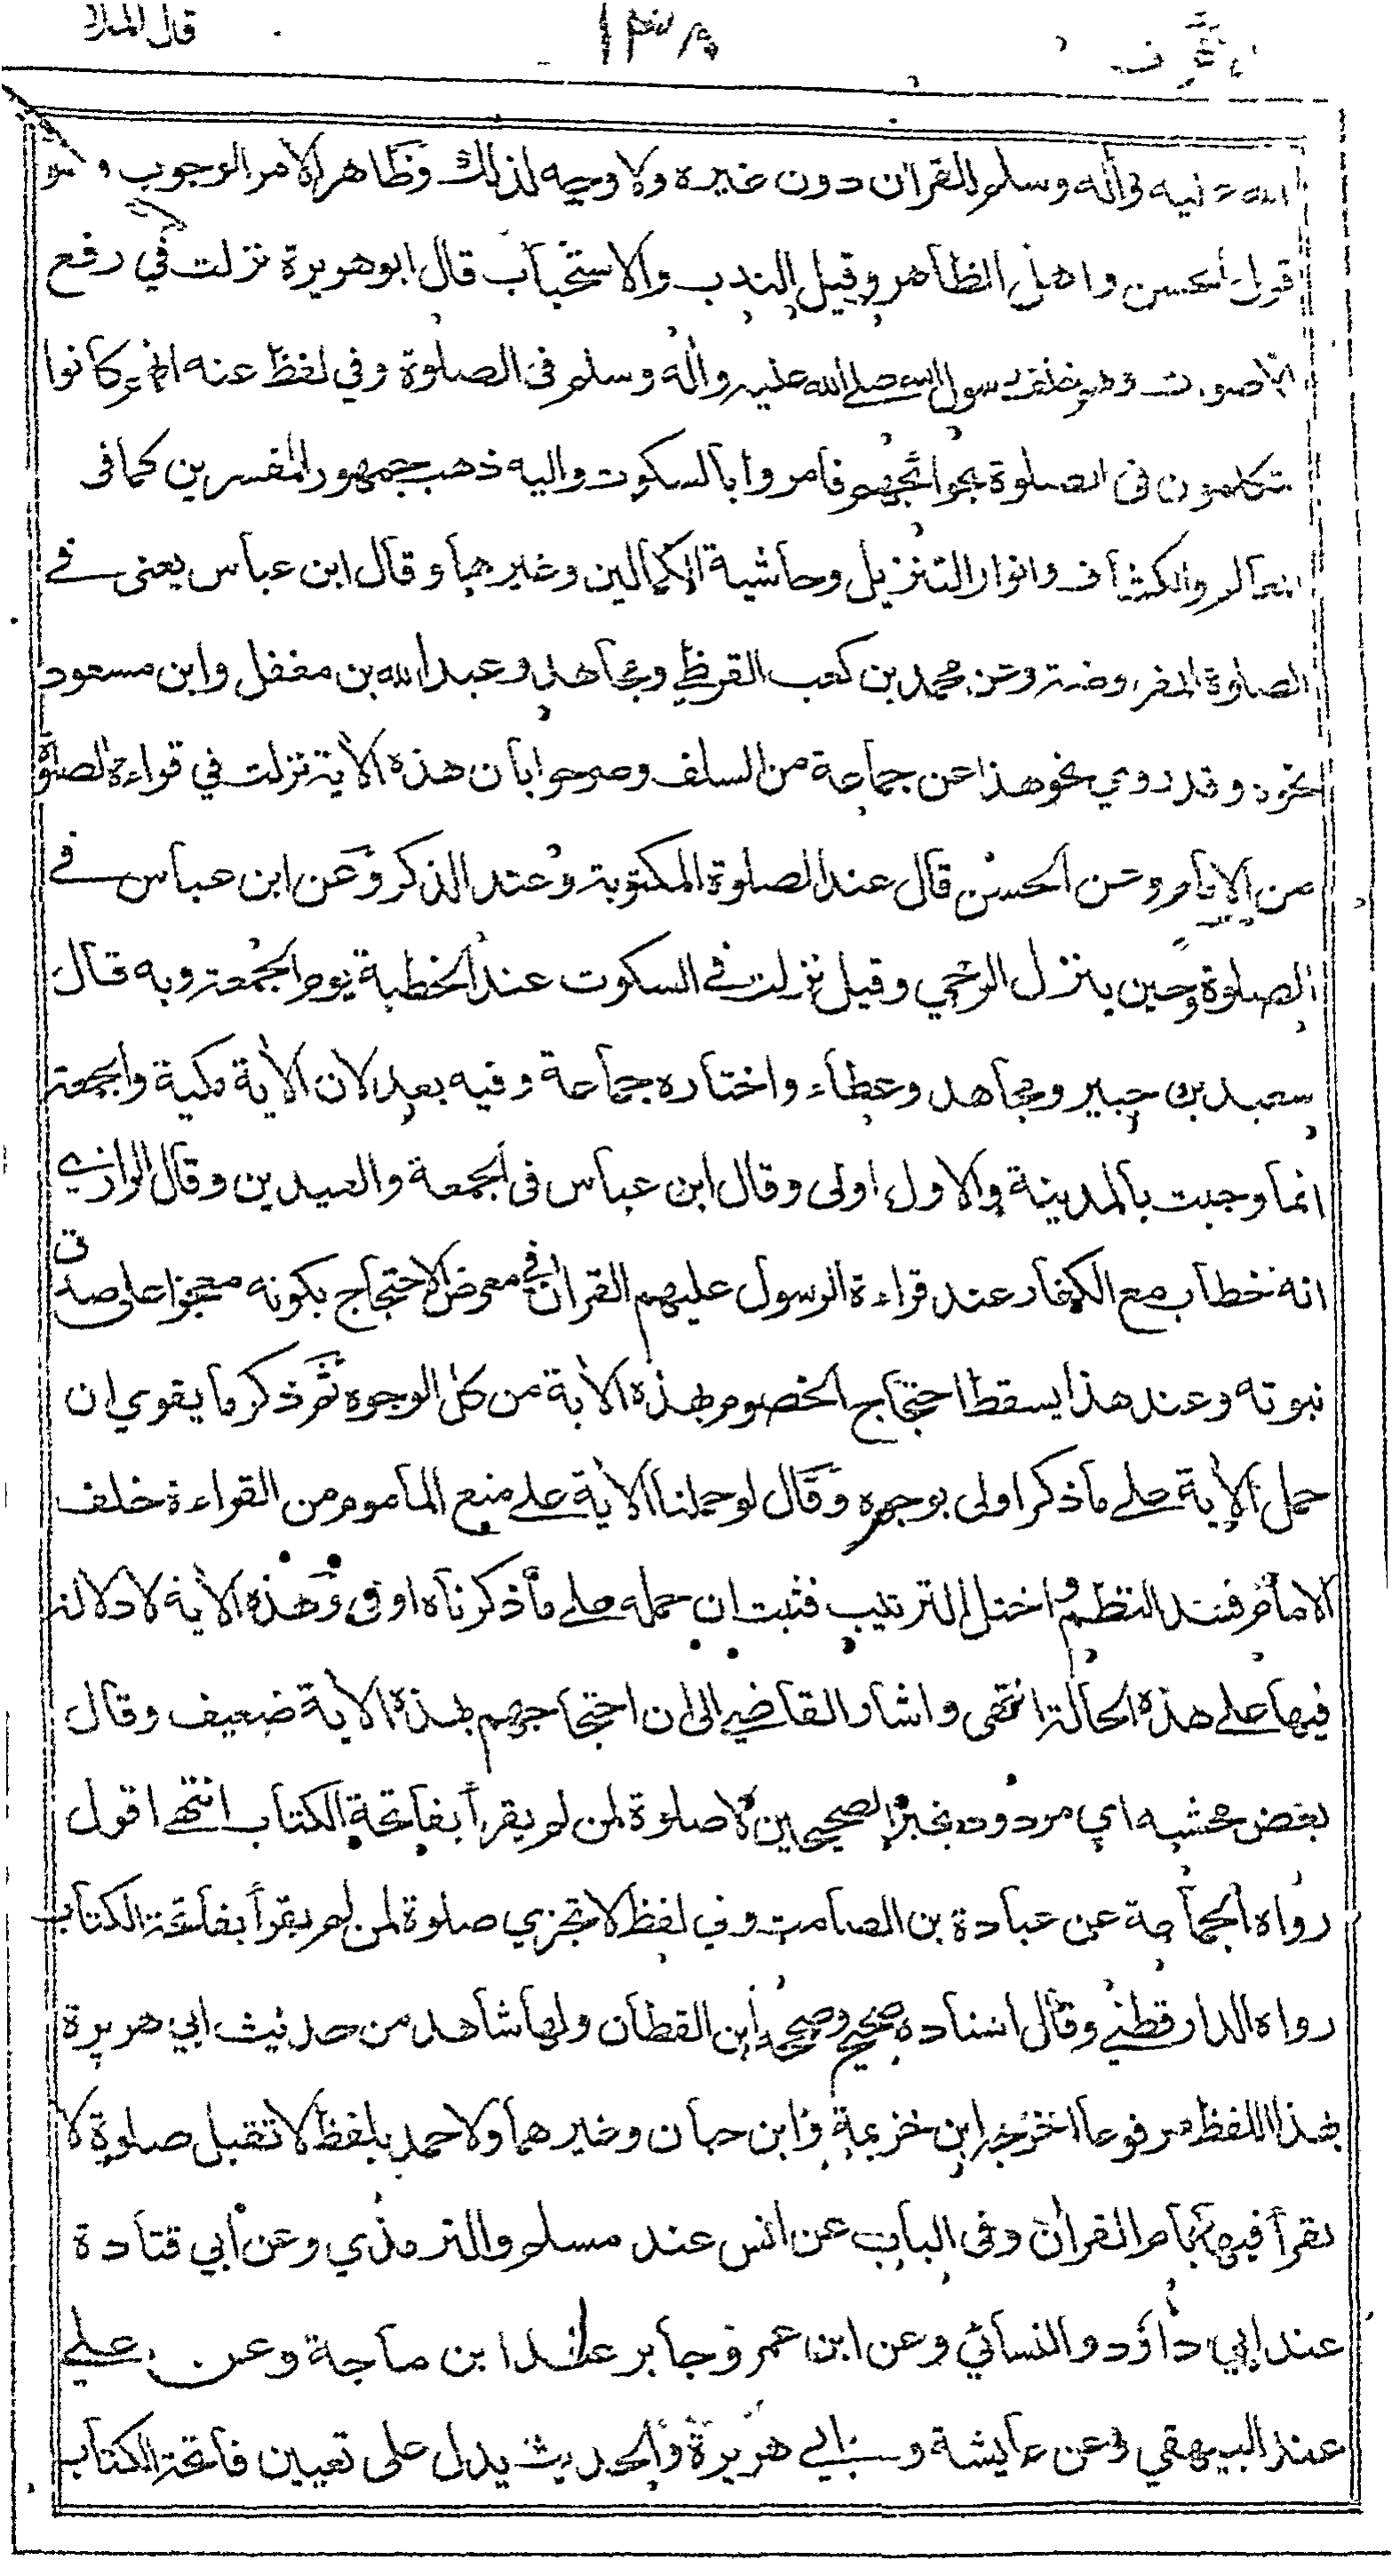 قال الملأ ١٣٨
الله عليه وآله وسلم للقرآن دون غيره ولا وجه لذلك وظاهر الامر الوجوب وهو
قول الحسن واهل الظاهر وقيل الندب والاستحباب قال ابو هريرة نزلت في رفع
الاصوات وهم خلف رسول الله صلى الله عليه وآله وسلم فى الصلوة وفي لفظ عنه انهم كانوا
يتكلمون فى الصلوة بحوائجهم فامروا بالسكوت واليه ذهب جمهور المفسرين كما فى
المعالم والكشاف وانوار التنزيل وحاشية الكمالين وغيرها وقال ابن عباس يعنى في
الصلوة المفروضة وعن محمد بن كعب القرظي ومجاهد وعبد الله بن مغفل وابن مسعود
نحوه وقد روي نحو هذا عن جماعة من السلف وصرحوا بان هذه الآية نزلت في قراءة الصلوة
من الامام وعن الحسن قال عند الصلوة المكتوبة وعند الذكر وعن ابن عباس في
الصلوة وحين ينزل الوحي وقيل نزلت في السكوت عند الخطبة يوم الجمعة وبه قال
سعيد بن جبير ومجاهد وعطاء واختاره جماعة وفيه بعد لان الآية مكية والجمعة
انما وجبت بالمدينة والاول اولى وقال ابن عباس فى الجمعة والعيدين وقال الرازي
انه خطاب مع الكفار عند قراءة الرسول عليهم القرآن في معرض الاحتجاج بكونه معجزا على صدق
نبوته وعند هذا يسقط احتجاج الخصوم بهذه الآية من كل الوجوه ثم ذكر ما يقوي ان
حمل الآية على ما ذكر اولى بوجوه وقال لو حملنا الآية على منع المأموم من القراءة خلف
الامام فسد النظم واختل الترتيب فثبت ان حمله على ما ذكرناه اوفى وهذه الآية لا دلالة
فيها على هذه الحالة انتهى واشار القاضي الى ان احتجاجهم بهذه الآية ضعيف وقال
بعض محشيه اي مردود بخبر الصحيحين لا صلوة لمن لم يقرأ بفاتحة الكتاب انتهى اقول
رواه الجماعة عن عبادة بن الصامت وفي لفظ لا تجزي صلوة لمن لم يقرأ بفاتحة الكتاب
رواه الدارقطني وقال اسناده صحيح وصححه ابن القطان ولها شاهد من حديث ابي هريرة
بهذا اللفظ مرفوعا اخرجه ابن خزيمة وابن حبان وغيرهما ولاحمد بلفظ لا تقبل صلوة لا
يقرأ فيها بام القرآن وفى الباب عن انس عند مسلم والترمذي وعن أبي قتادة
عند ابي داؤد والنسائي وعن ابن عمر وجابر عند ابن ماجة وعن علي
عند البيهقي وعن عايشة وابي هريرة والحديث يدل على تعيين فاتحة الكتاب